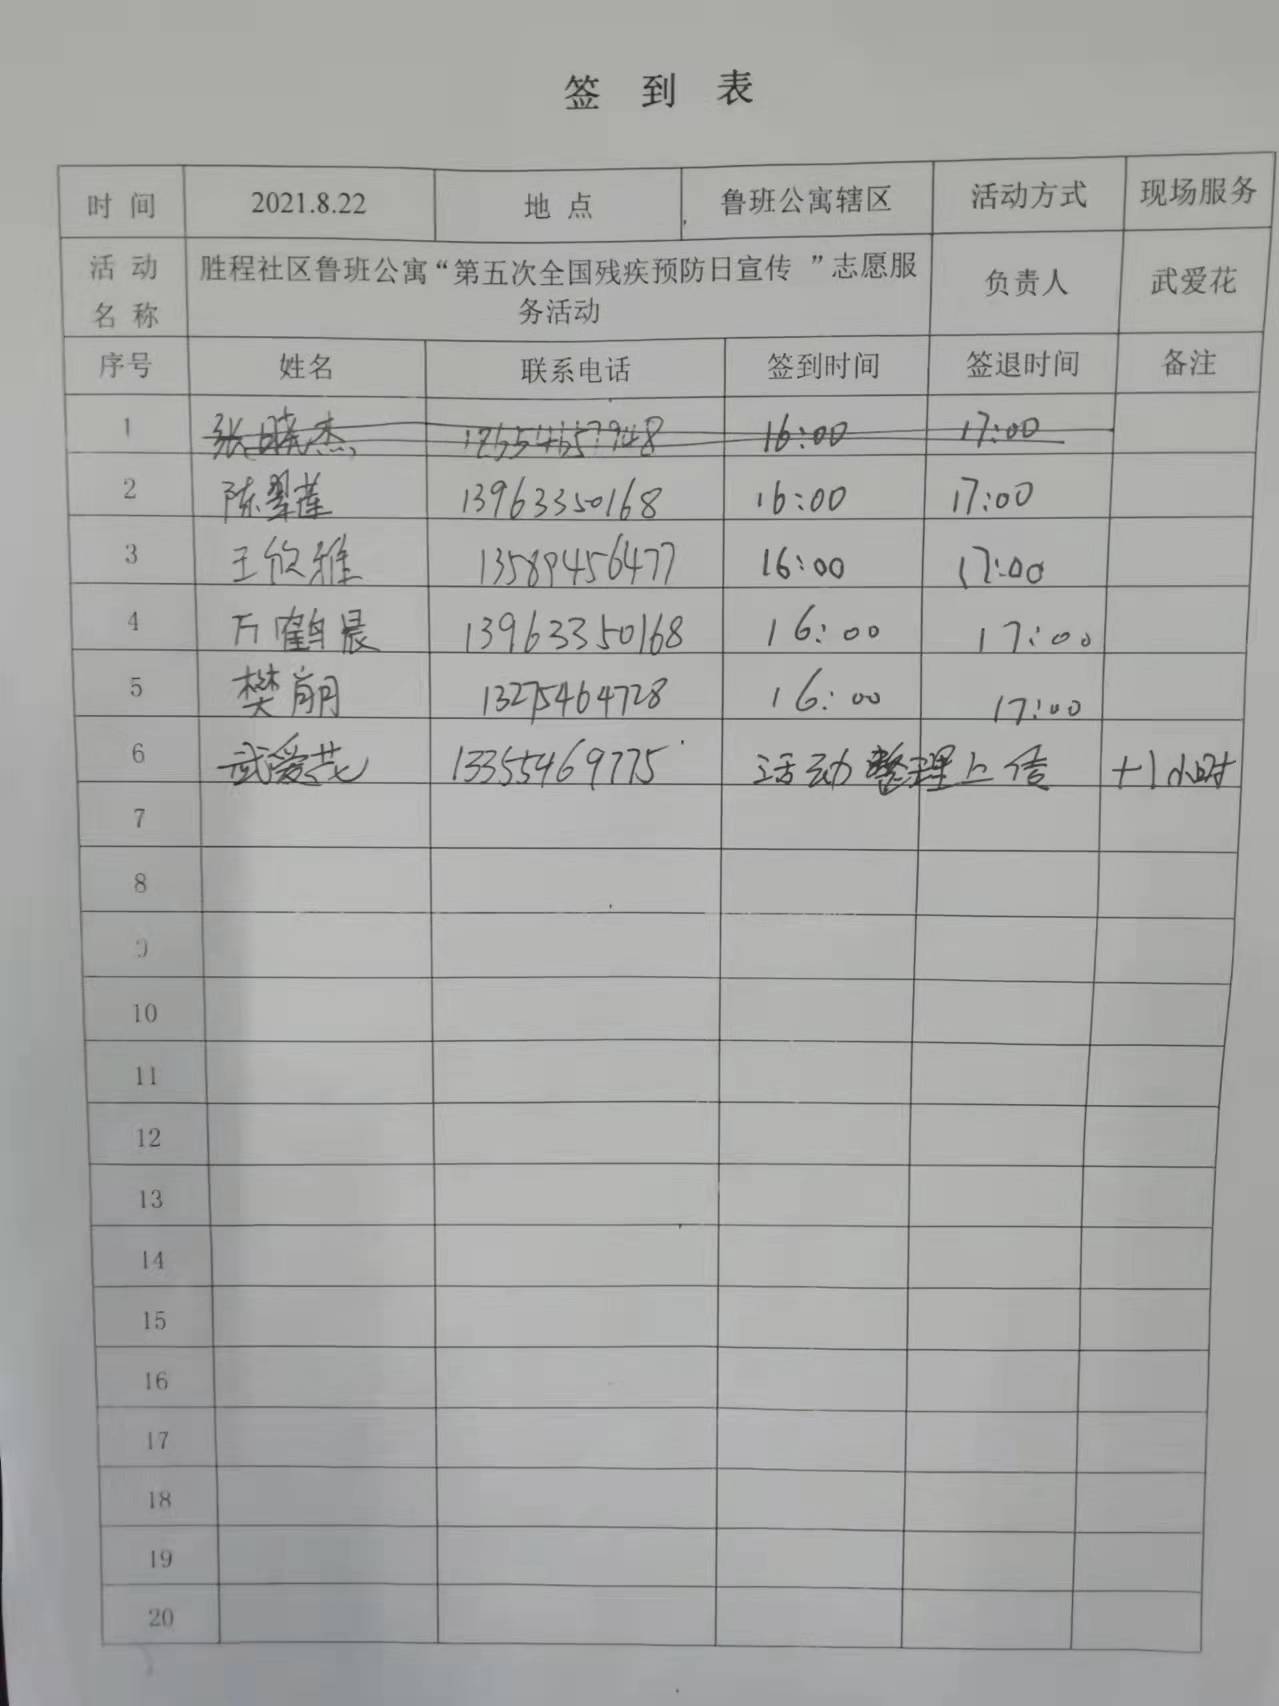 签 到 表
时 间 2021.8.22 地 点 鲁班公寓辖区 活动方式 现场服务
活 动 名 称 胜程社区鲁班公寓“第五次全国残疾预防日宣传 ”志愿服 负责人 武爱花
务活动
序号 姓名 联系电话 签到时间 签退时间 备注
1 张晓杰 16:00 17:00
2 陈翠莲 13963350168 16:00 17:00
3 王欣雅 13589456477 16:00 17:00
4 万鹤晨 13963350168 16:00 17:00
5 樊 13275464728 16:00 17:00
6 武爱花 13355469775 活动整理上传 +1小时
7
8
9
10
11
12
13
14
15
16
17
18
19
20